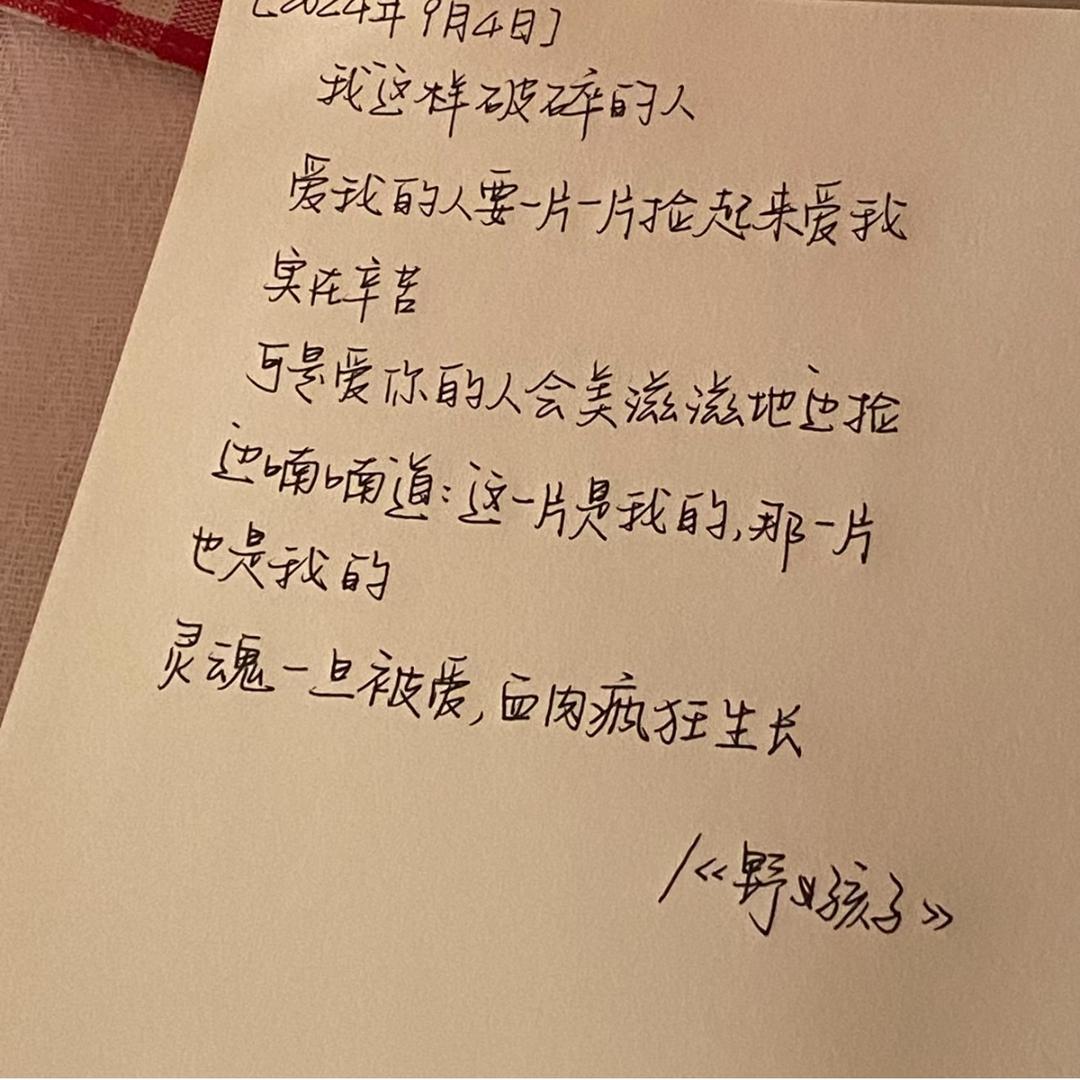 [2024年9月4日]
我这样破碎的人
爱我的人要一片一片捡起来爱我
实在辛苦
可是爱你的人会美滋滋地边捡
边喃喃道:这一片是我的,那一片
也是我的
灵魂一旦被爱,血肉疯狂生长
/《野孩子》